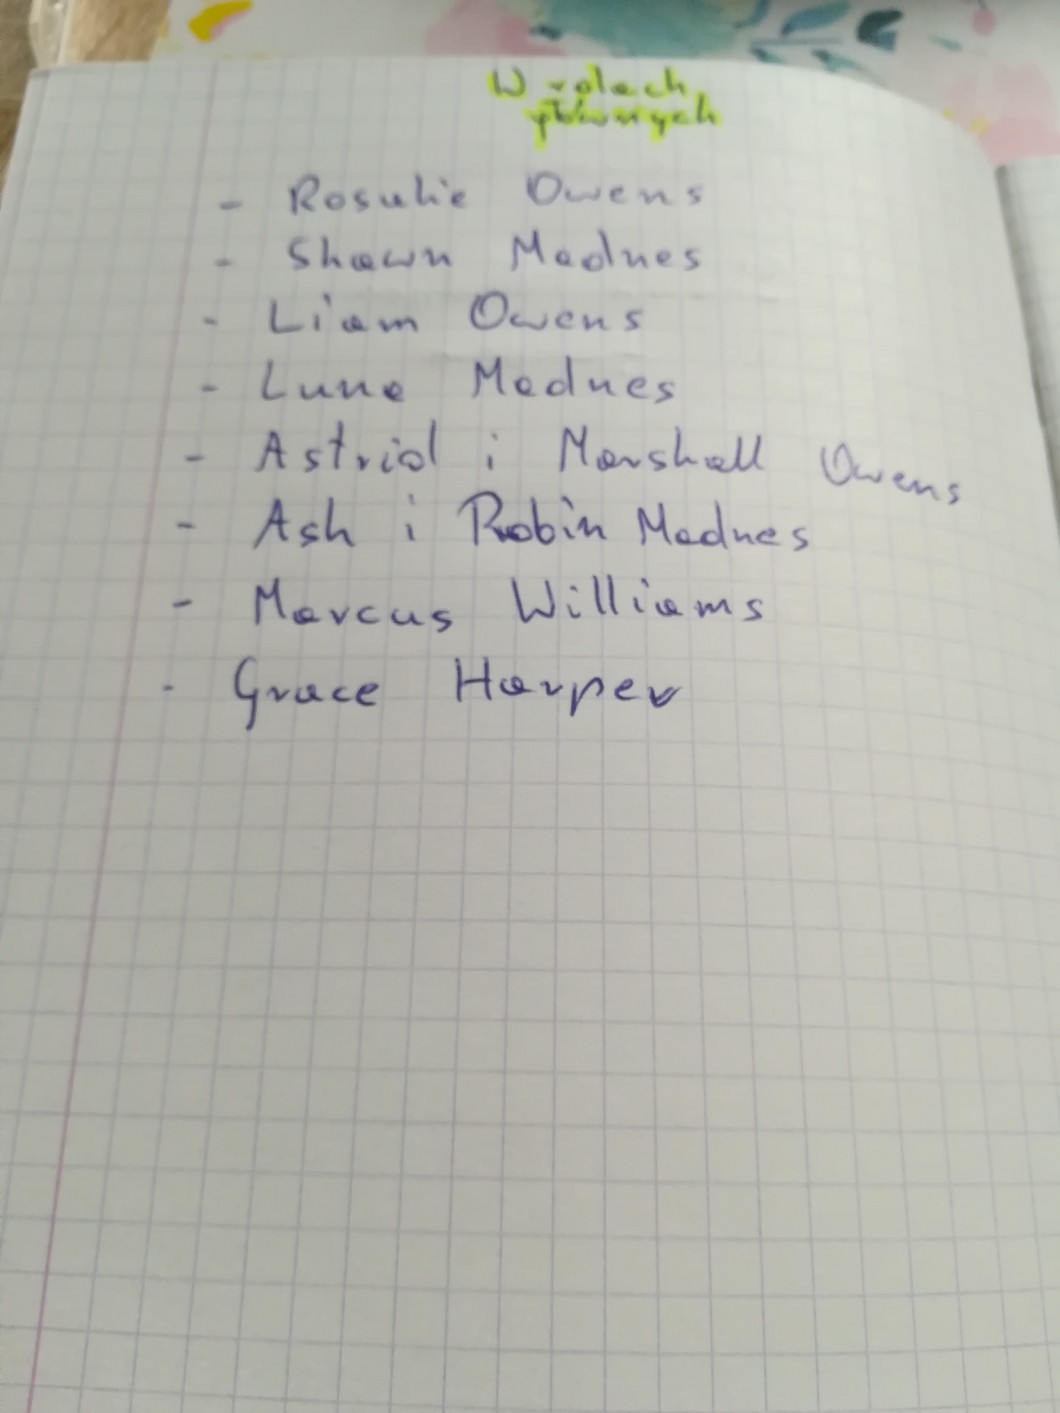 W rolach
głównych
- Rosalie Owens
- Shawn Madnes
- Liam Owens
- Luna Madnes
- Astrid i Marshall Owens
- Ash i Robin Madnes
- Marcus Williams
- Grace Harper